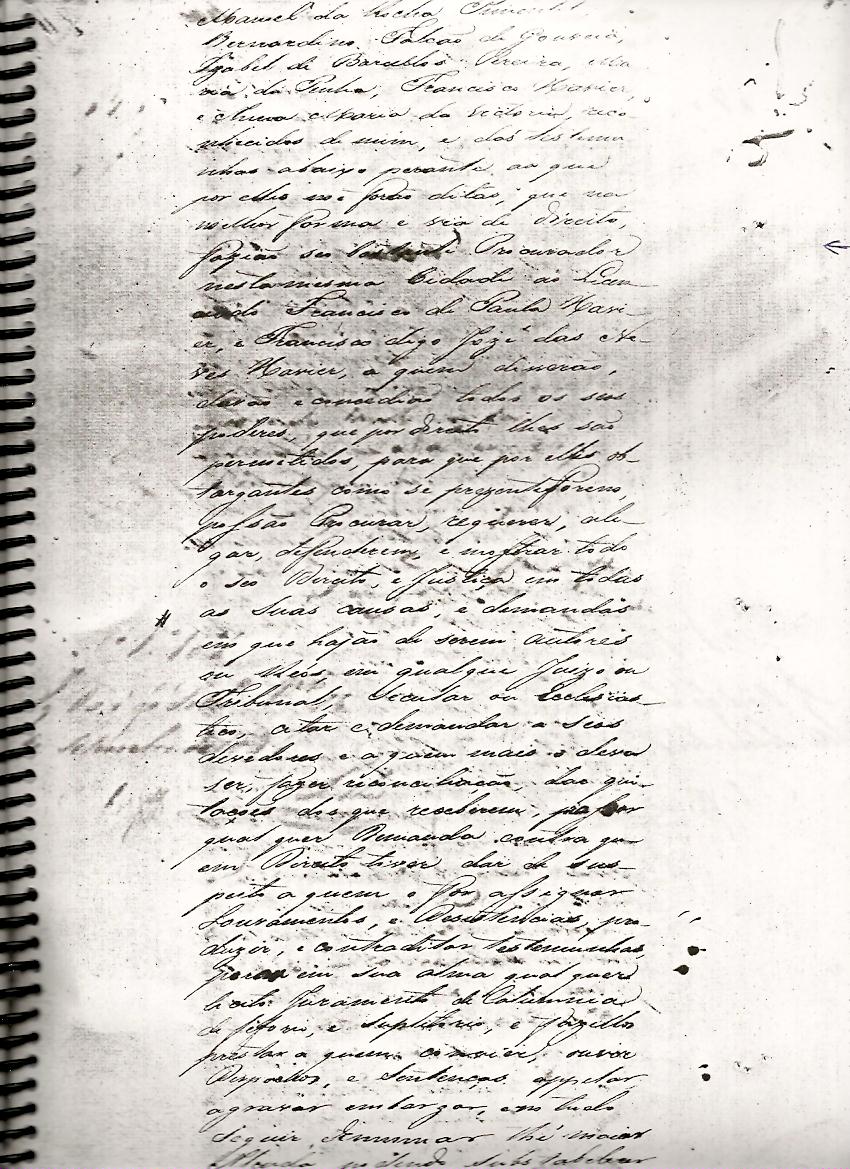 Manoel da Rocha Pimentel,
Bernardino Falcão de Gouveia,
Izabel de Barcellos Pereira, Ma
ria da Penha, Francisco Xavier,
e Maria da Victoria, reco
nhecidos de mim, e das testemu
nhas abaixo perante as que
por elles me forão ditas, que na
melhor forma e via de direito,
fazião seo bastante Procurador
nesta mesma Cidade ao Licen
ciado Francisco de Paula Xavi
er, e Francisco digo Jozé das Ne
ves Xavier, a quem disserão,
davão e concedião todos os seos
poderes, que por direito lhes são
permetidos, para que por elles ob
targantes como se prezentes forem,
possão Procurar, requerer, ale
gar, defenderem, e mostrar todo
o seo Direito, e Justiça em todas
as suas causas, e demandas
em que hajão de serem autores
ou Réos, em qualque Juizo ou
Tribunal, Secular ou Ecclesias
tico, citar e demandar a seos
devedores e a quem mais o deva
ser, fazer reconciliação, dar qui
taçoes dos que receberem,
qual quer Demanda contra qu
em Direito tiver dar de sus
peito a quem o for assignar
Louvamentos, e Desistencias, pro
duzir, e contraditar testemunhas,
jurar em sua alma qual quer
licito Juramento de Calumnia
decisorio, e supletorio, e fazello
prestar a quem convier, ouvir
Despachos, e Sentenças appelar,
agravar embargar, em tudo
seguir, thé maior
Alçada podendo substabelecer